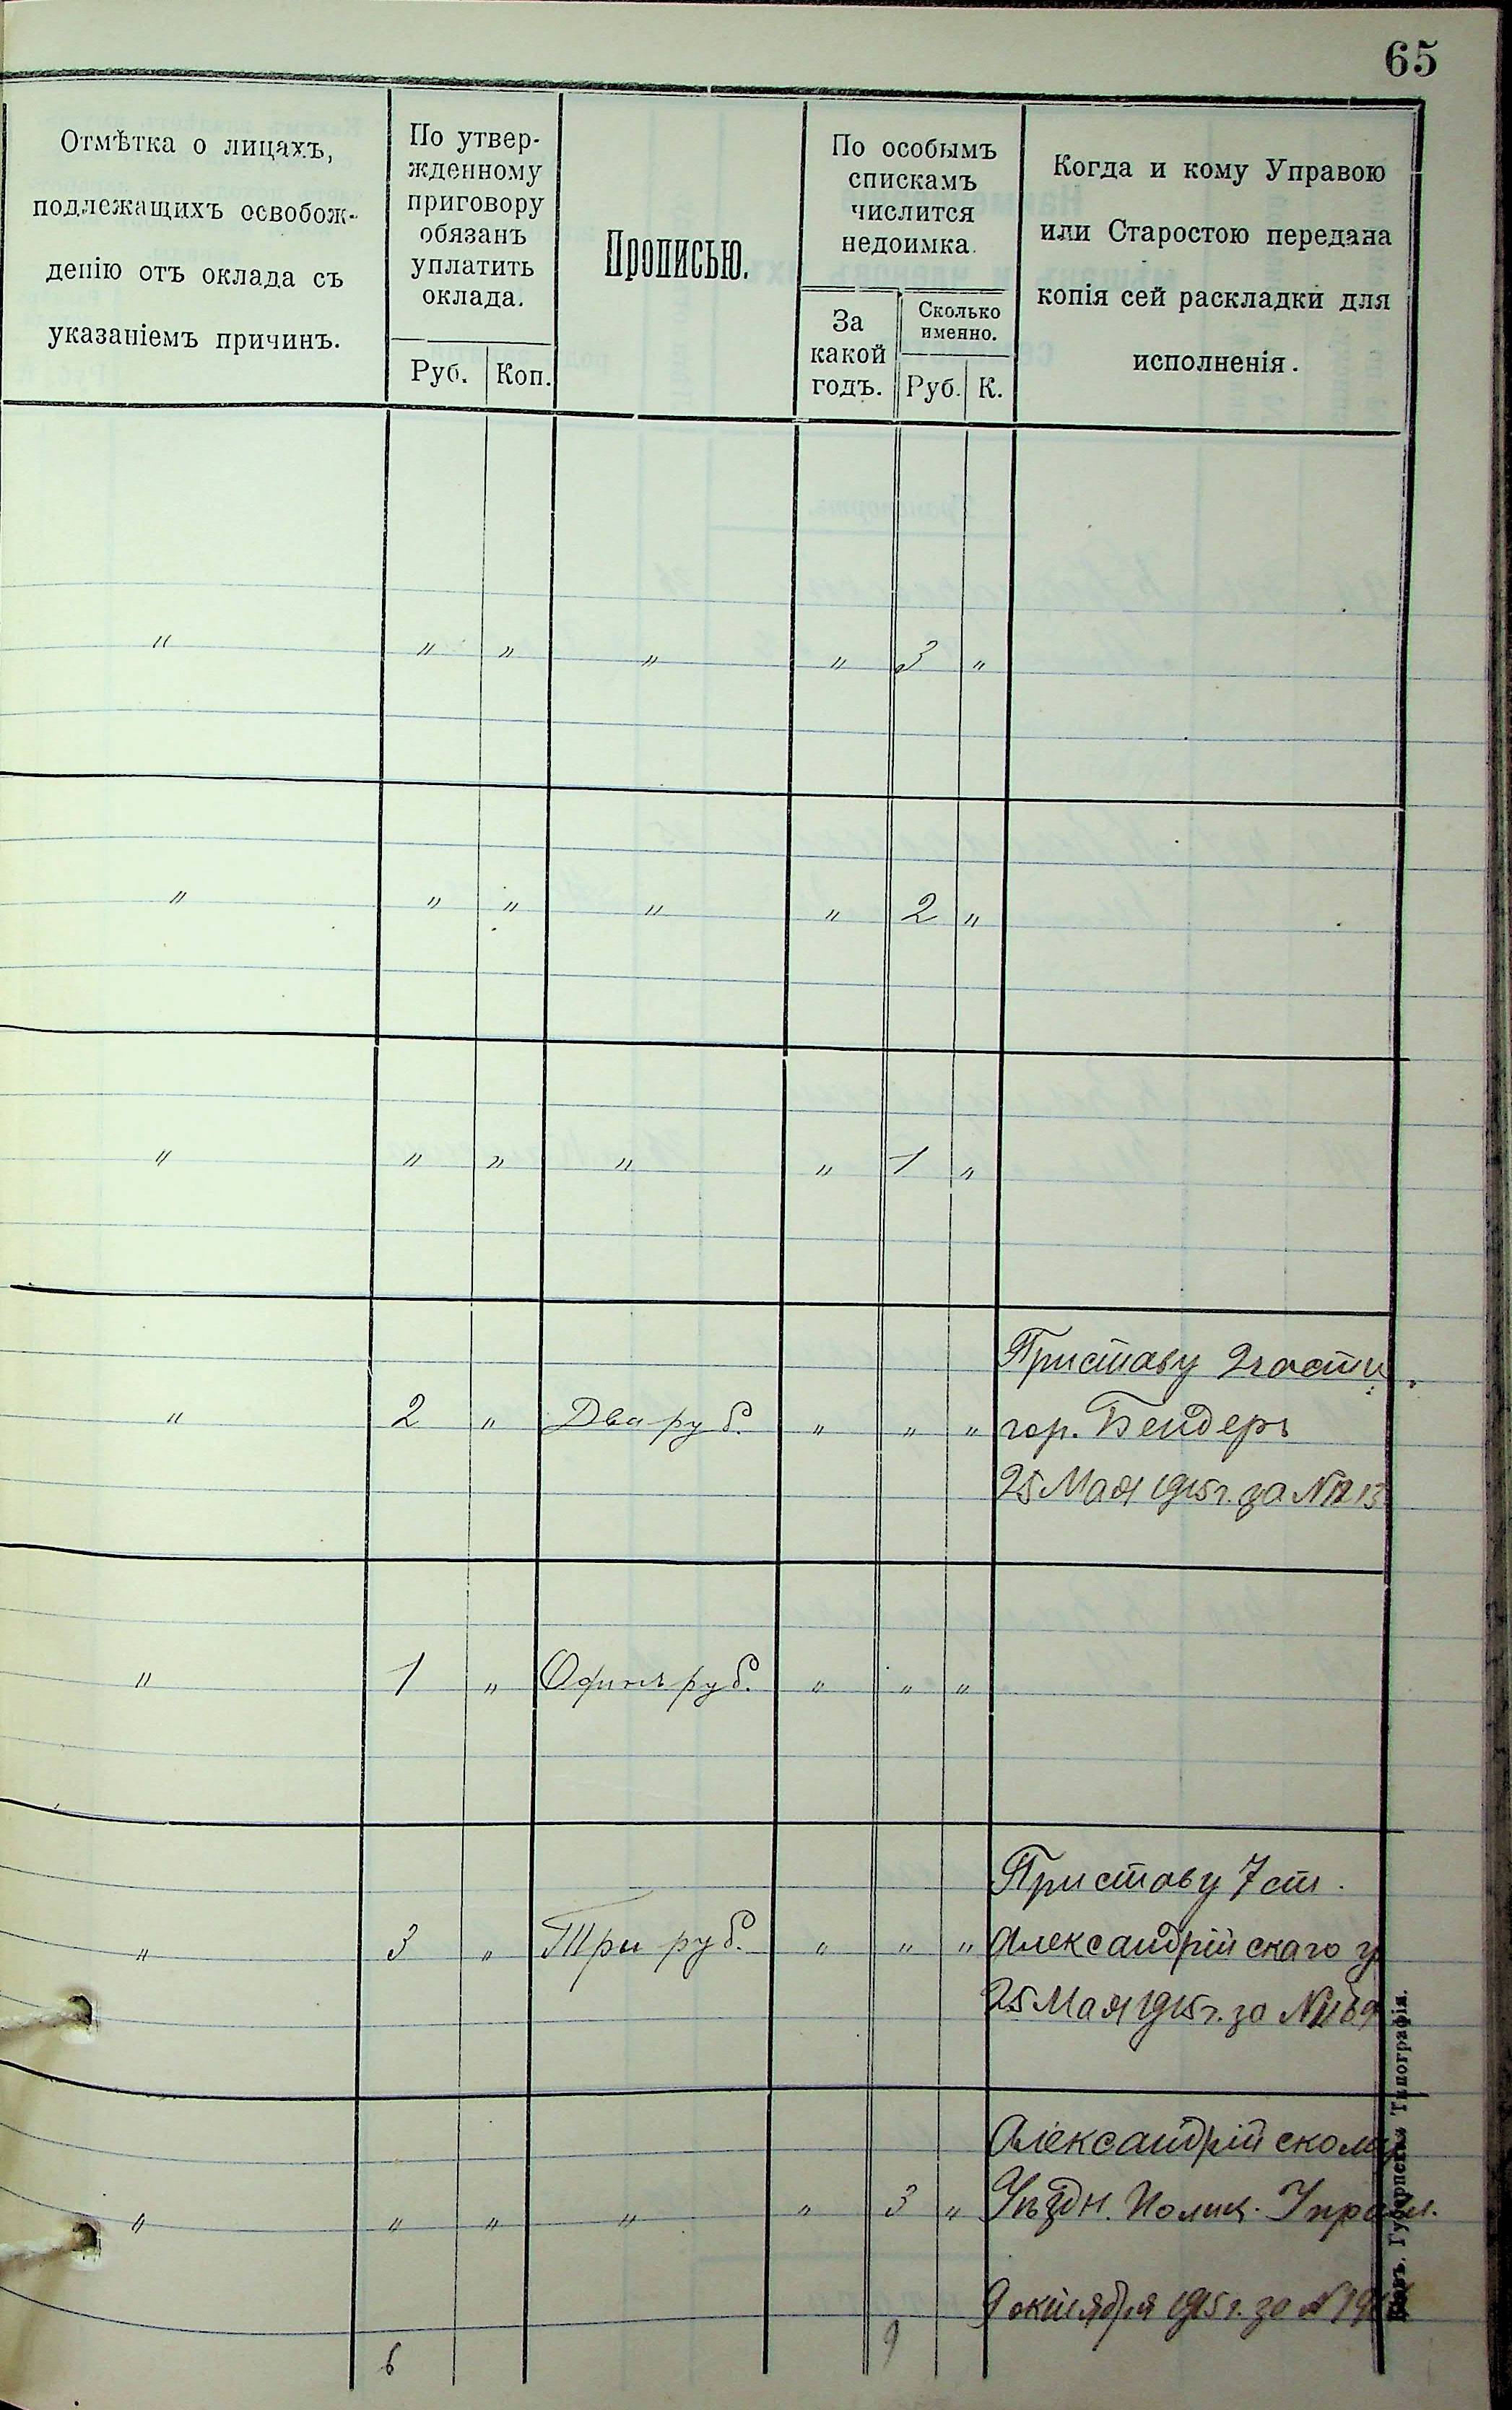 65
Отмѣтка о лицахъ,
подлежащихъ освобож-
денію отъ оклада съ
указаніемъ причинъ.
По утвер-
жденному
приговору
обязанъ
уплатить
оклада.
Руб. Коп.
Прописью.
По особымъ
спискамъ
числится
недоимка.
За
какой
годъ.
Сколько
именно.
Руб. К.
Когда и кому Управою
или Старостою передана
копія сей раскладки для
исполненія.
" " " " " 3 "
" " " " " 2 "
" " " " " 1 "
Приставу 2 части
" 2 " Два руб. " " " гор. Бендеръ
25 Мая 1915 г. за №
" 1 " Одинъ руб. " " "
Приставу 7 ст.
" 3 " Три руб. " " " Александрійскаго у
25 Мая 1915 г. за №
Александрійскому
" " " " " 3 " Уѣздн. Полиц. Управл.
9 октября 1915 г. за №
6 9
Губернская Типографія.